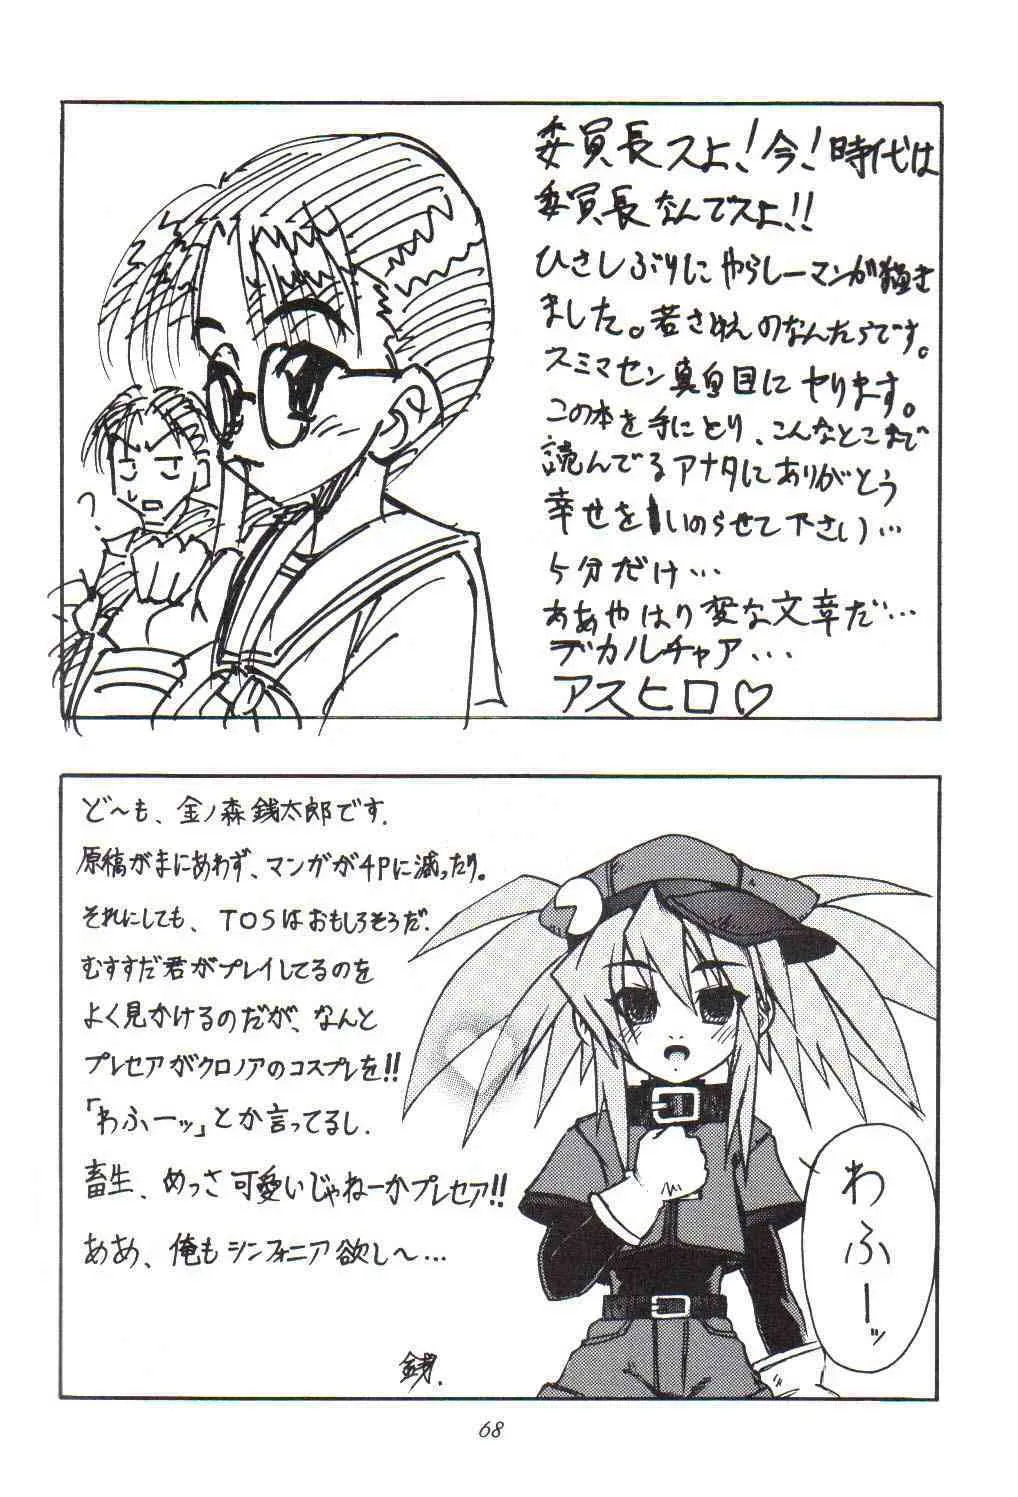 委員長スよ！今！時代は
委員長なんでスよ！！
ひさしぶりにやらしーマンガ描き
ました。若さゆえのなんたらです。
スミマセン真面目にヤります。
この本を手にとり、こんなとこまで
読んでるアナタにありがとう
幸せをいのらせて下さい…
5分だけ…
ああやはり変な文章だ…
デカルチャア…
アスヒロ♡
ど〜も、金ノ森銭太郎です.
原稿がまにあわず、マンガが4Pに減ったり。
それにしても、TOSはおもしろそうだ.
むすすだ君がプレイしてるのを
よく見かけるのだが、なんと
プレセアがクロノアのコスプレを!!
「わふーッ」とか言ってるし.
畜生、めっさ可愛いじゃねーかプレセア!!
ああ、俺もシンフォニア欲し〜…
銭.
わふーッ
68